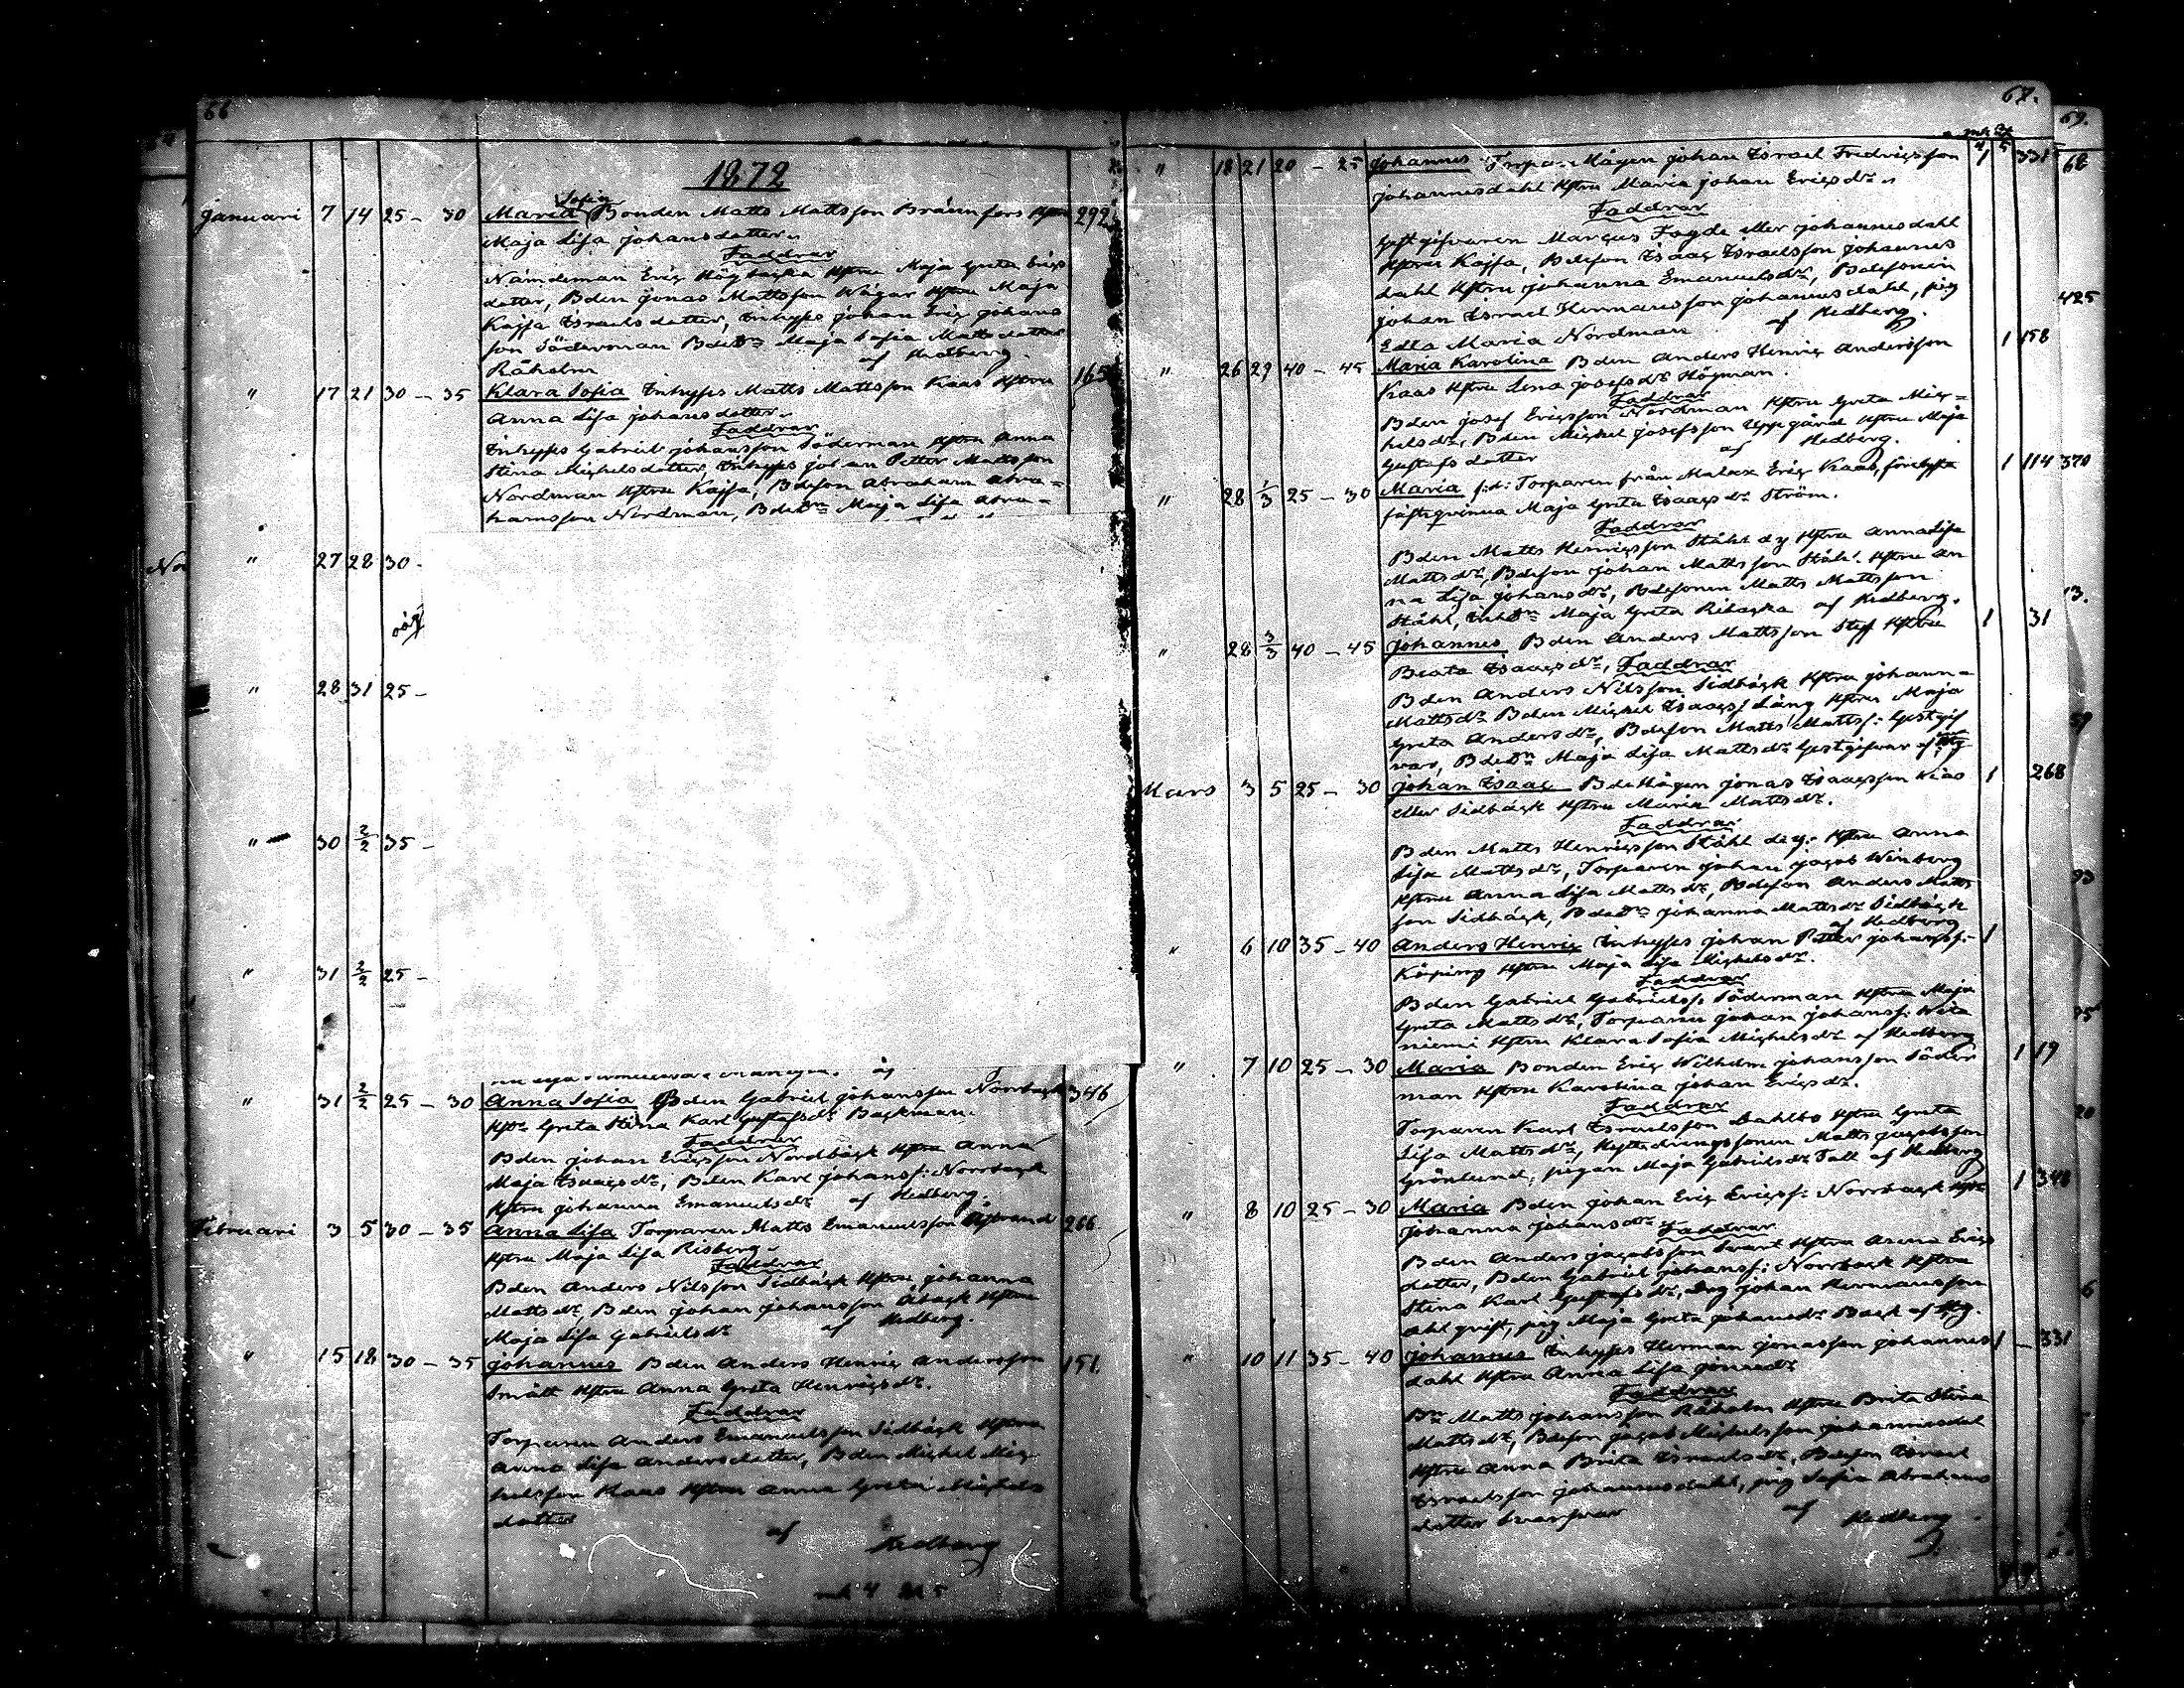 66
1872
Januari 7 14 25 – 30 Maria Sofia Bonden Matts Mattsson Brännfors Hstru 292
Maja Lisa Johansdotter.
Faddrar
Nämdeman Eric Högbacka Hstru Maja Greta Erics
dotter, Bden Jonas Mattsson Wägar Hstru Maja
Kajsa Israelsdotter, Inhyses Johan Eric Johans
son Söderman BdeDr Maja Sofia Mattsdotter
Råholm af Hedberg.
" 17 21 30 – 35 Klara Sofia Inhyses Matts Mattsson Kaas Hstru 165
Anna Lisa Johansdotter.
Faddrar
Inhyses Gabriel Johansson Söderman Hstru Anna
Stina Michelsdotter, Inhyses Johan Petter Mattsson
Nordman Hstru Kajsa, Bdeson Abraham Abra=
hamsson Nordman, BdeDr Maja Lisa Abra=
" 27 28 30
" 28 31 25 –
" 30 2/2 35 –
" 31 2/2 25 –
" 31 2/2 25 – 30 Anna Sofia Bden Gabriel Johansson Norrback 346
Hstru Greta Stina Karl Gustafsdr Backman.
Faddrar
Bden Johan Ericsson Nordbäck Hstru Anna
Maja Isaacsdr, Bden Karl Johanss: Norrback
Hstru Johanna Emanuelsdr af Hedberg.
Februari 3 5 30 – 35 Anna Lisa Torparen Matts Emanuelsson 266
Hstru Maja Lisa Risberg.
Faddrar
Bden Anders Nilsson Sidbäck Hstru Johanna
Mattsdr, Bden Johan Johansson Åback Hstru
Maja Lisa Gabrielsdr af Hedberg.
" 15 18 30 – 35 Johannes Bden Anders Henric Andersson 151.
Smått Hstru Anna Greta Henricsdr.
Faddrar
Torparen Anders Emanuelsson Sidbäck Hstru
Anna Lisa Andersdotter, Bden Michel Mic
helsson Kaas Hstru Anna Greta Michels
dotter af Hedberg
67.
" 18 21 20 – 25 Johannes Torpa-Mågen Johan Israel Fredricsson 1 331
Johannesdahl Hstru Maria Johan Ericsdr.
Faddrar
Gestgifvaren Marcus Fagde eller Johannesdahl
Hstru Kajsa, Bdeson Isaac Israelsson Johannes
dahl Hstru Johanna Emanuelsdr, Bdesonen
Johan Israel Hermansson Johannesdahl, pig
Edla Maria Nordman af Hedberg.
" 26 29 40 – 45 Maria Karolina Bden Anders Henric Andersson 1 158
Kaas Hstru Lena Josefsdr Högman.
Faddrar
Bden Josef Ericsson Nordman Hstru Greta Mic=
helsdr, Bden Michel Josefsson Uppgård Hstru Maja
Gustafsdotter af Hedberg.
" 28 1/3 25 – 30 Maria f:d: Torparen från Malax Eric Kaas, 1 114
fästqvinna Maja Greta Isaacsdr Ström.
Faddrar
Bden Matts Henricsson Ståhl dy Hstru Anna Lisa
Mattsdr, Bdeson Johan Mattsson Ståhl Hstru An
na Lisa Johansdr, Bdesonen Matts Mattsson
Ståhl, Maja Greta Ribacka af Hedberg.
" 28 3/3 40 – 45 Johannes Bden Anders Mattsson Hstru 1 31
Beata Isaacsdr, Faddrar
Bden Anders Nilsson Sidbäck Hstru Johann=
Mattsdr Bden Michel Isaacs: Lång Hstru Maja
Greta Andersdr, Bdeson Matts Mattss: Gestgif
var, BdeDr Maja Lisa Mattsdr Gestgifvar af
Mars 3 5 25 – 30 Johan Isaac BdeMågen Jonas Isaacsson 1 268
eller Sidbäck Hstru Maria Mattsdr.
Faddrar
Bden Matts Henricsson Ståhl d.y. Hstru Anna
Lisa Mattsdr, Torparen Johan Jacob Winberg
Hstru Anna Lisa Mattsdr, Bdeson Anders Matts
son Sidbäck, BdeDr Johanna Mattsdr Sidbäck
af Hedberg
" 6 10 35 – 40 Anders Henric Inhyses Johan Petter Johanss: 1
Köping Hstru Maja Lisa Michelsdr.
Faddrar
Bden Gabriel Gabrielss: Söderman Hstru Maja
Greta Mattsdr, Torparen Johan Johanss:
niemi Hstru Klara Sofia Michelsdr af Hedberg
" 7 10 25 – 30 Maria Bonden Eric Wilhelm Johansson Söder 1 19
man Hstru Karolina Johan Ericsdr.
Faddrar
Torparen Karl Israelsson Dahlbo Hstru Greta
Lisa Mattsdr, Matts Jacobsson
Grönlund, pigan Maja Gabrielsdr Tall af Hedberg
" 8 10 25 – 30 Maria Bden Johan Eric Ericss: Norrback Hstru 1 348
Johanna Johansdr. Faddrar
Bden Anders Jacobsson Svart Hstru Anna Erics
dotter, Bden Gabriel Johanss: Norrback Hstru
Stina Karl Gustafsdr, drg Johan Hermansson
Ahlqvist, pig Maja Greta Johansdr Back af Hbg.
" 10 11 35 – 40 Johannes Inhyses Herman Jonasson Johannes 1 – 331
dahl Hstru Anna Lisa Jonasdr
Faddrar
Bn Matts Johansson Råholm Hstru Brita Stina
Mattsdr, Bdeson Jacob Michelsson Johannesdal
Hstru Anna Brita Israelsdr, Bdeson Israel
Israelsson Johannesdahl, pig Sofia Abrahams
dotter Svarfvar af Hedberg.
69.
68
425
370